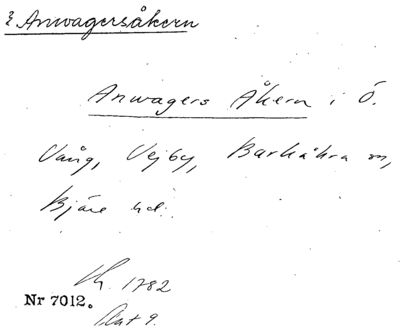 Anwagersåkern
Anwagers Åkern i Ö.
Vång, Vejby, Barkåkra sn,
Bjäre hd.
1782
Nr 7012.
9.